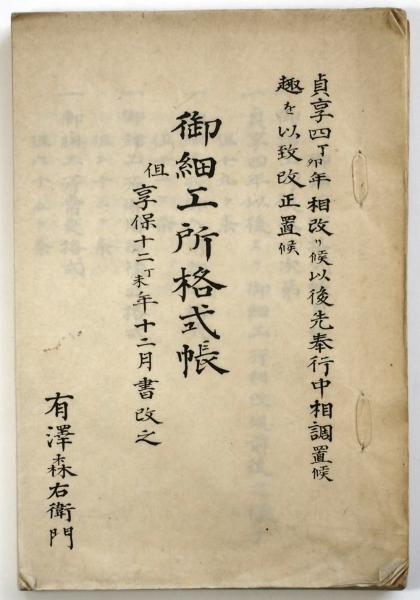 貞享四丁卯年相改り候以後先奉行中相調置候
趣を以致改正置候
御細工所格式帳
但享保十二丁未年十二月書改之
有澤森右衛門